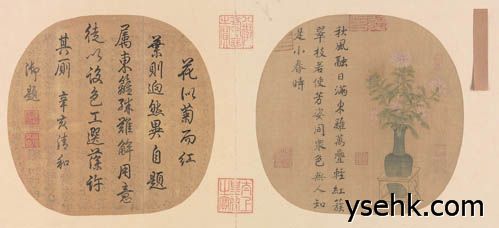 秋風融日滿東籬萬疊輕紅簇
翠枝若使芳姿同衆色無人知
是小春時
花似菊而紅
葉則迥然異自題
屬東籬殊難解用意
徒以設色工選藻許
其厠 辛亥清和
御題
ysehk.com